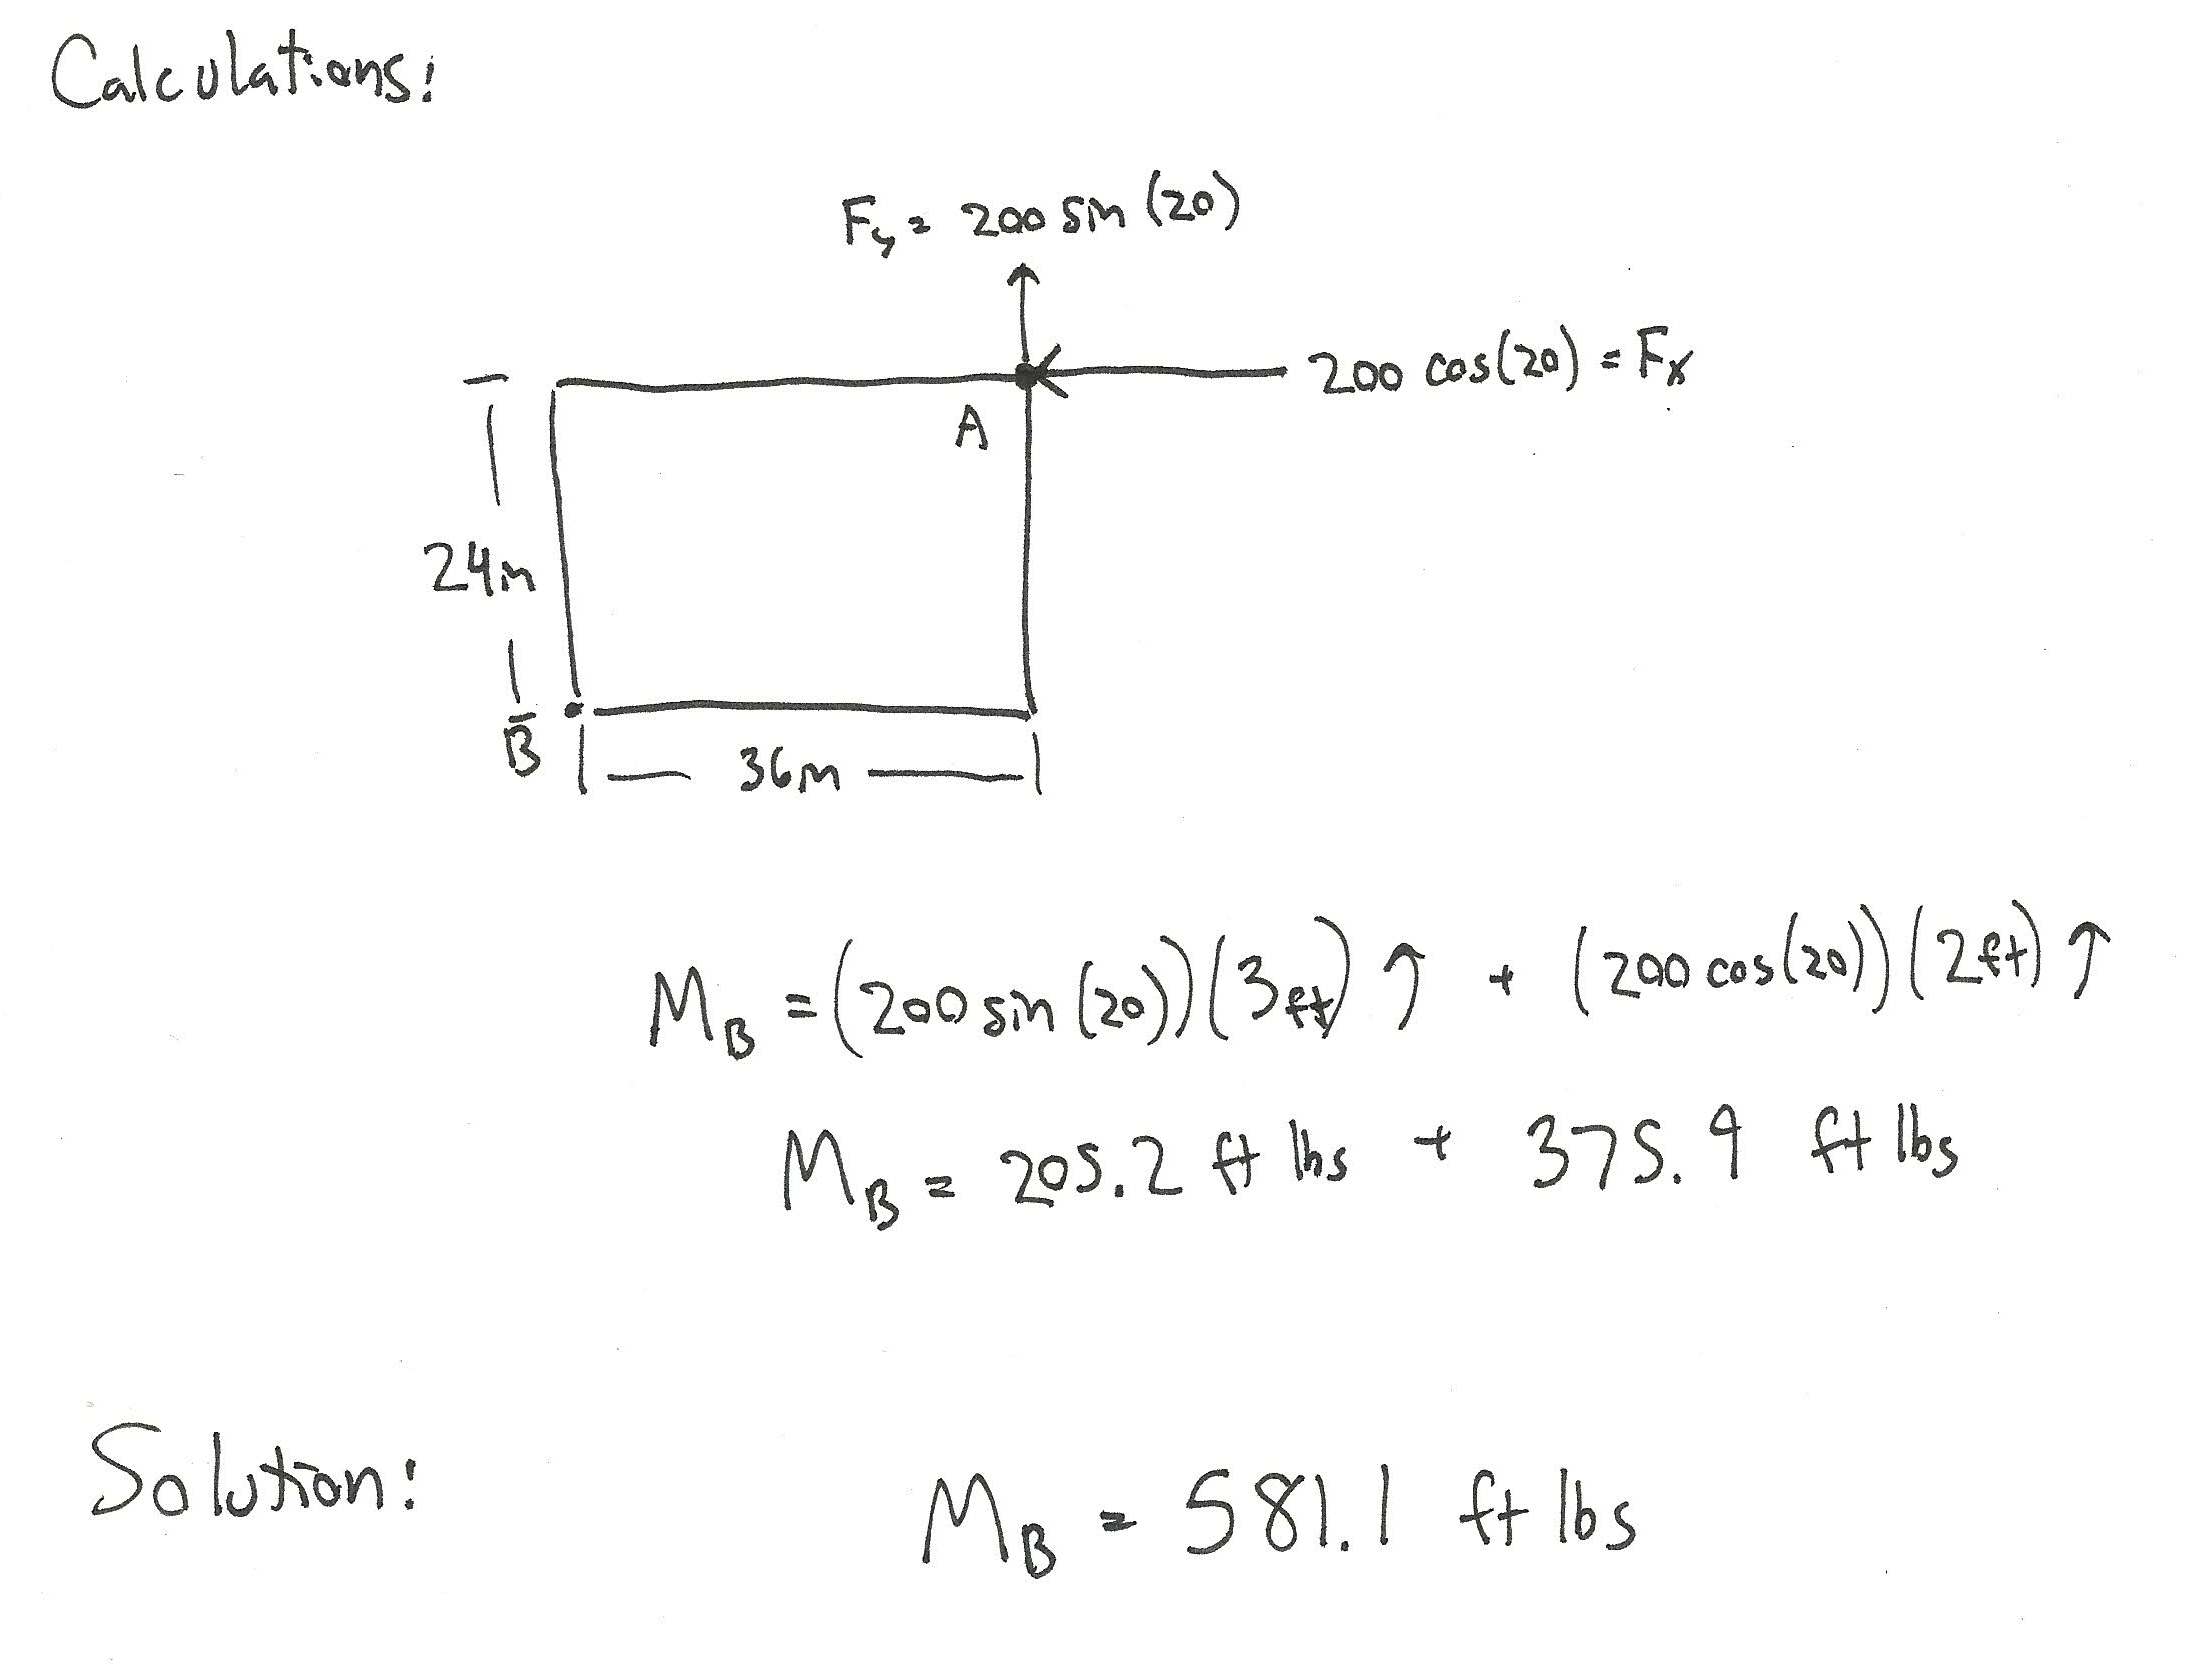 Calculations:
Fy = 200 sin (20)
200 cos(20) = Fx
A
24in
B
36in
MB = (200 sin (20))(3ft) ↑ + (200 cos(20))(2ft) ↑
MB = 205.2 ft lbs + 375.9 ft lbs
Solution:
MB = 581.1 ft lbs